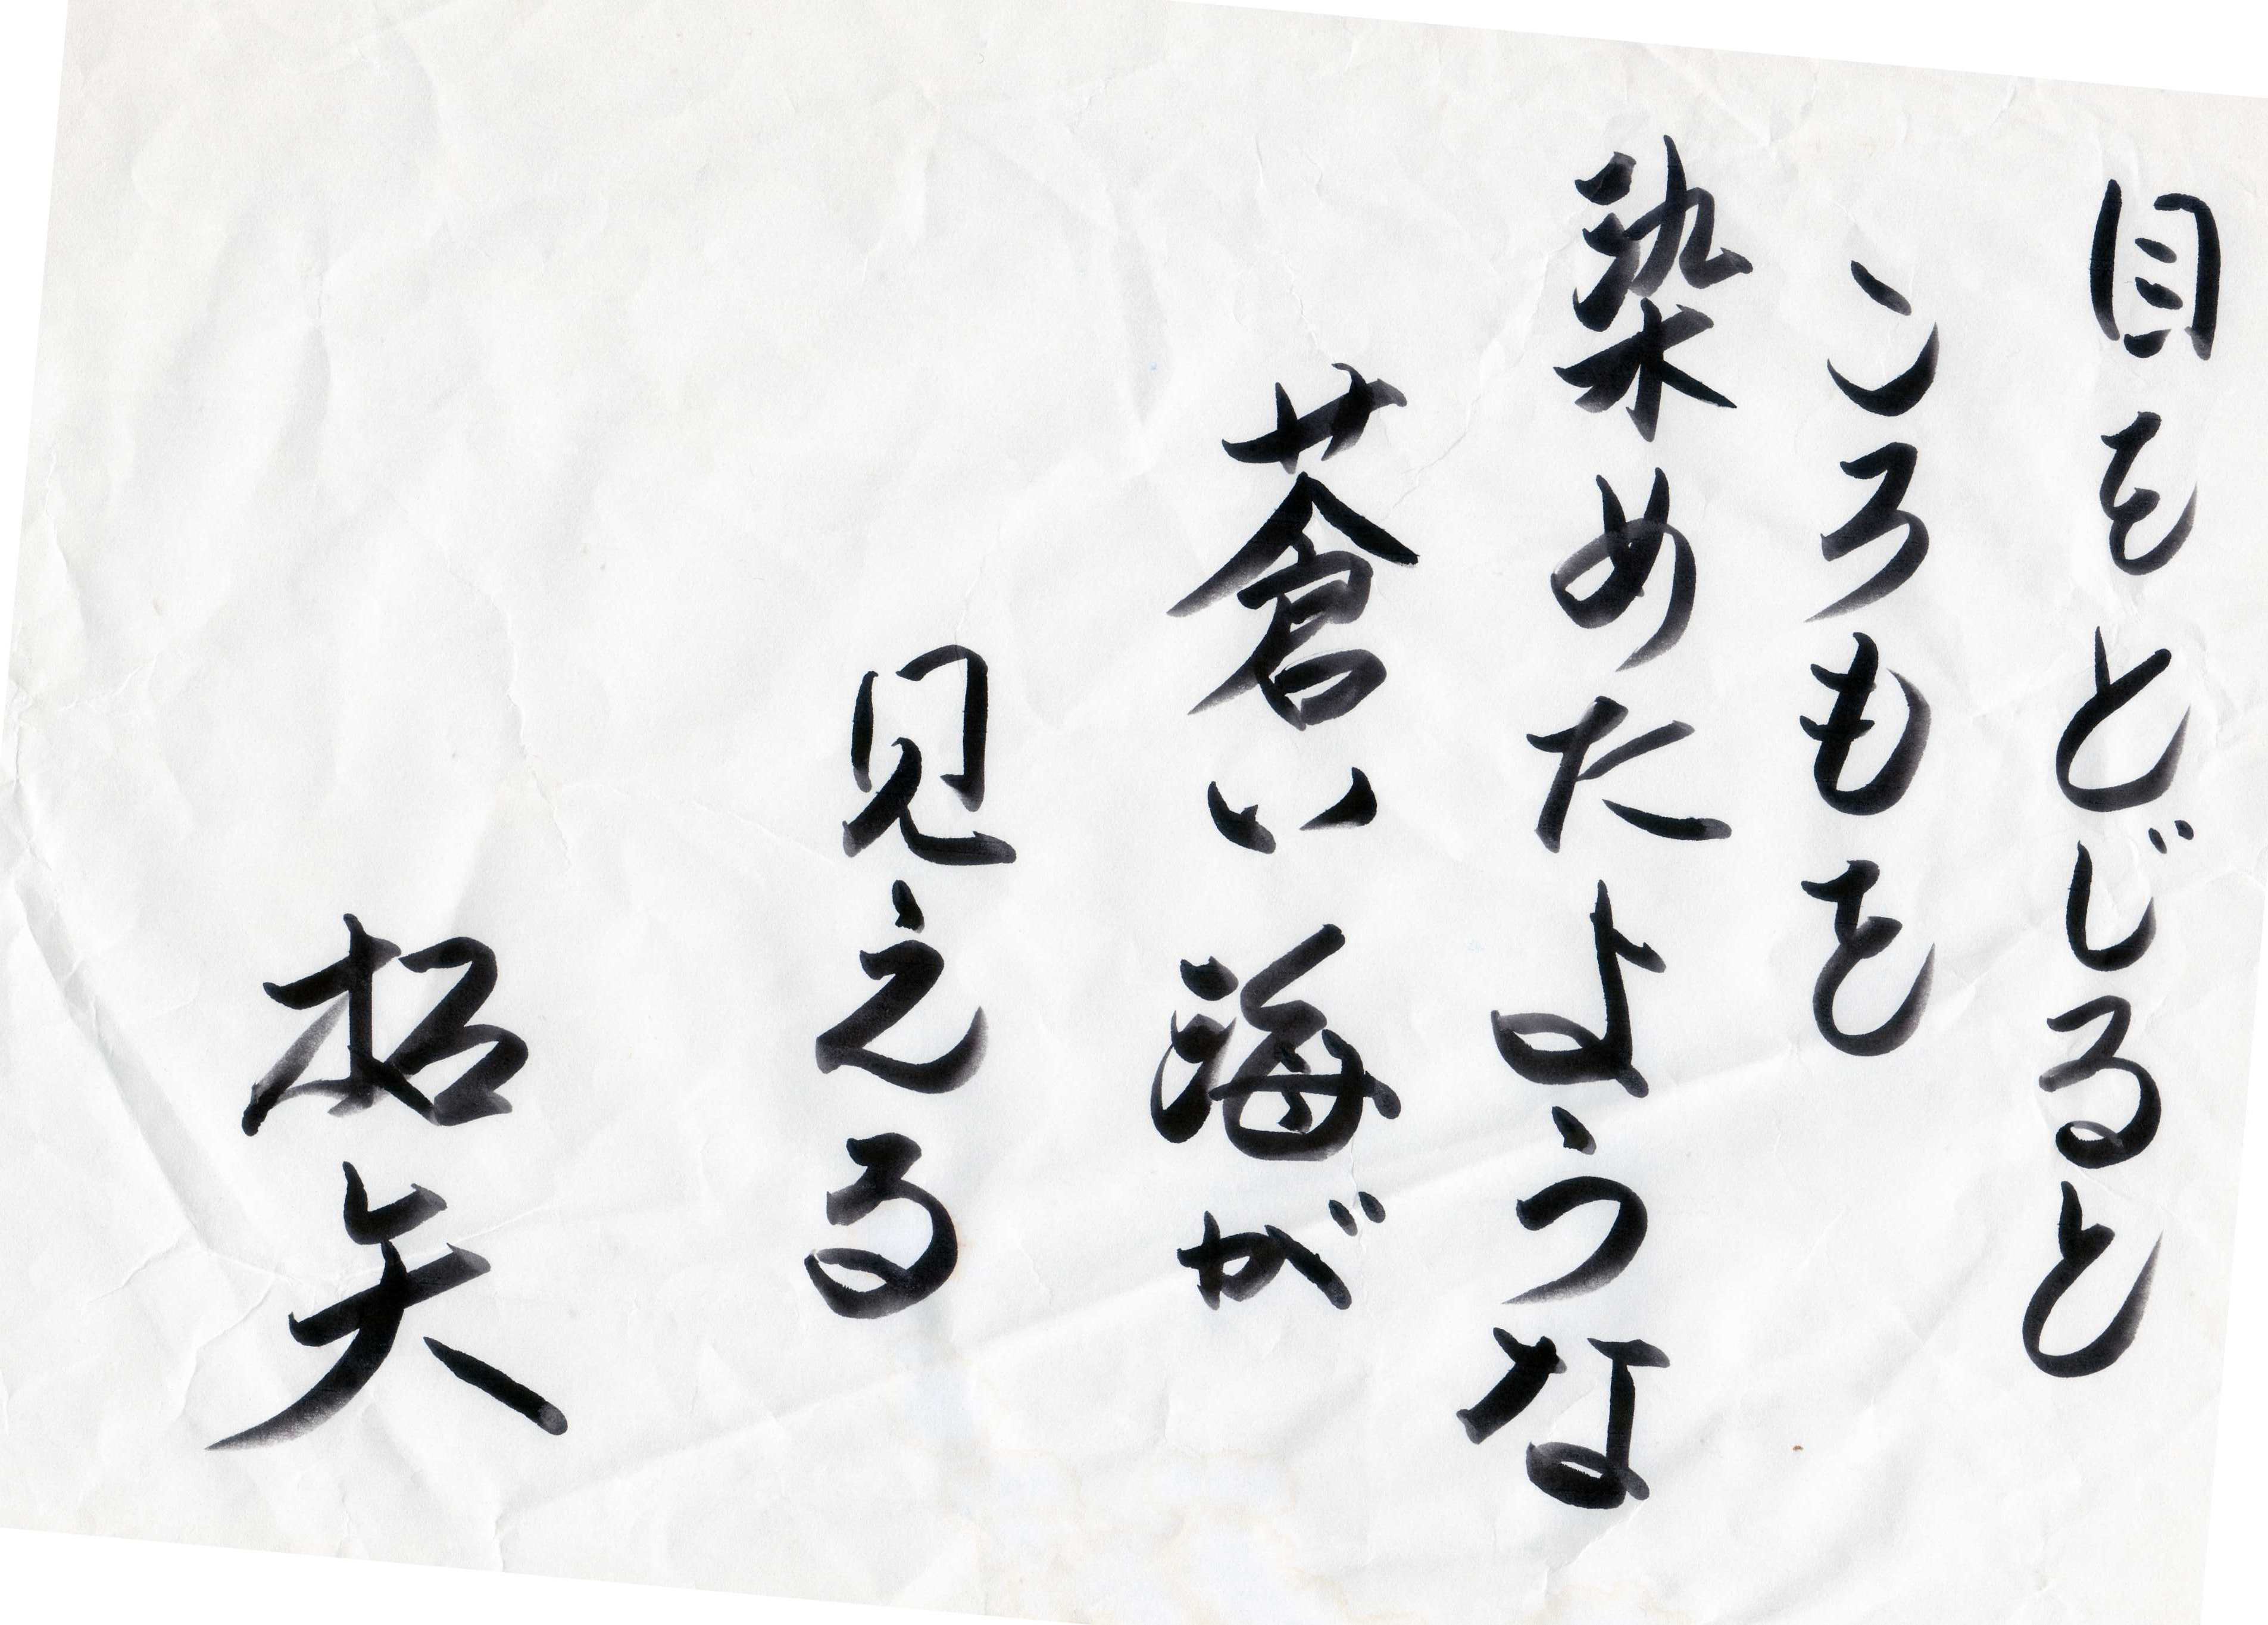 目をとじると
ころもを
染めたような
蒼い海が
見える
拓矢